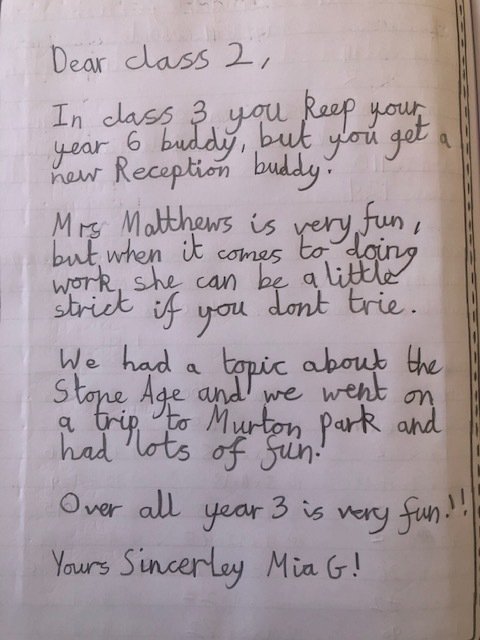 Dear class 2,
In class 3 you keep your
year 6 buddy, but you get a
new Reception buddy.
Mrs Matthews is very fun,
but when it comes to doing
work, she can be a little
strict if you dont trie.
We had a topic about the
Stone Age and we went on
a trip to Murton Park and
had lots of fun.
Over all year 3 is very fun!!!
Yours Sincerley Mia G!